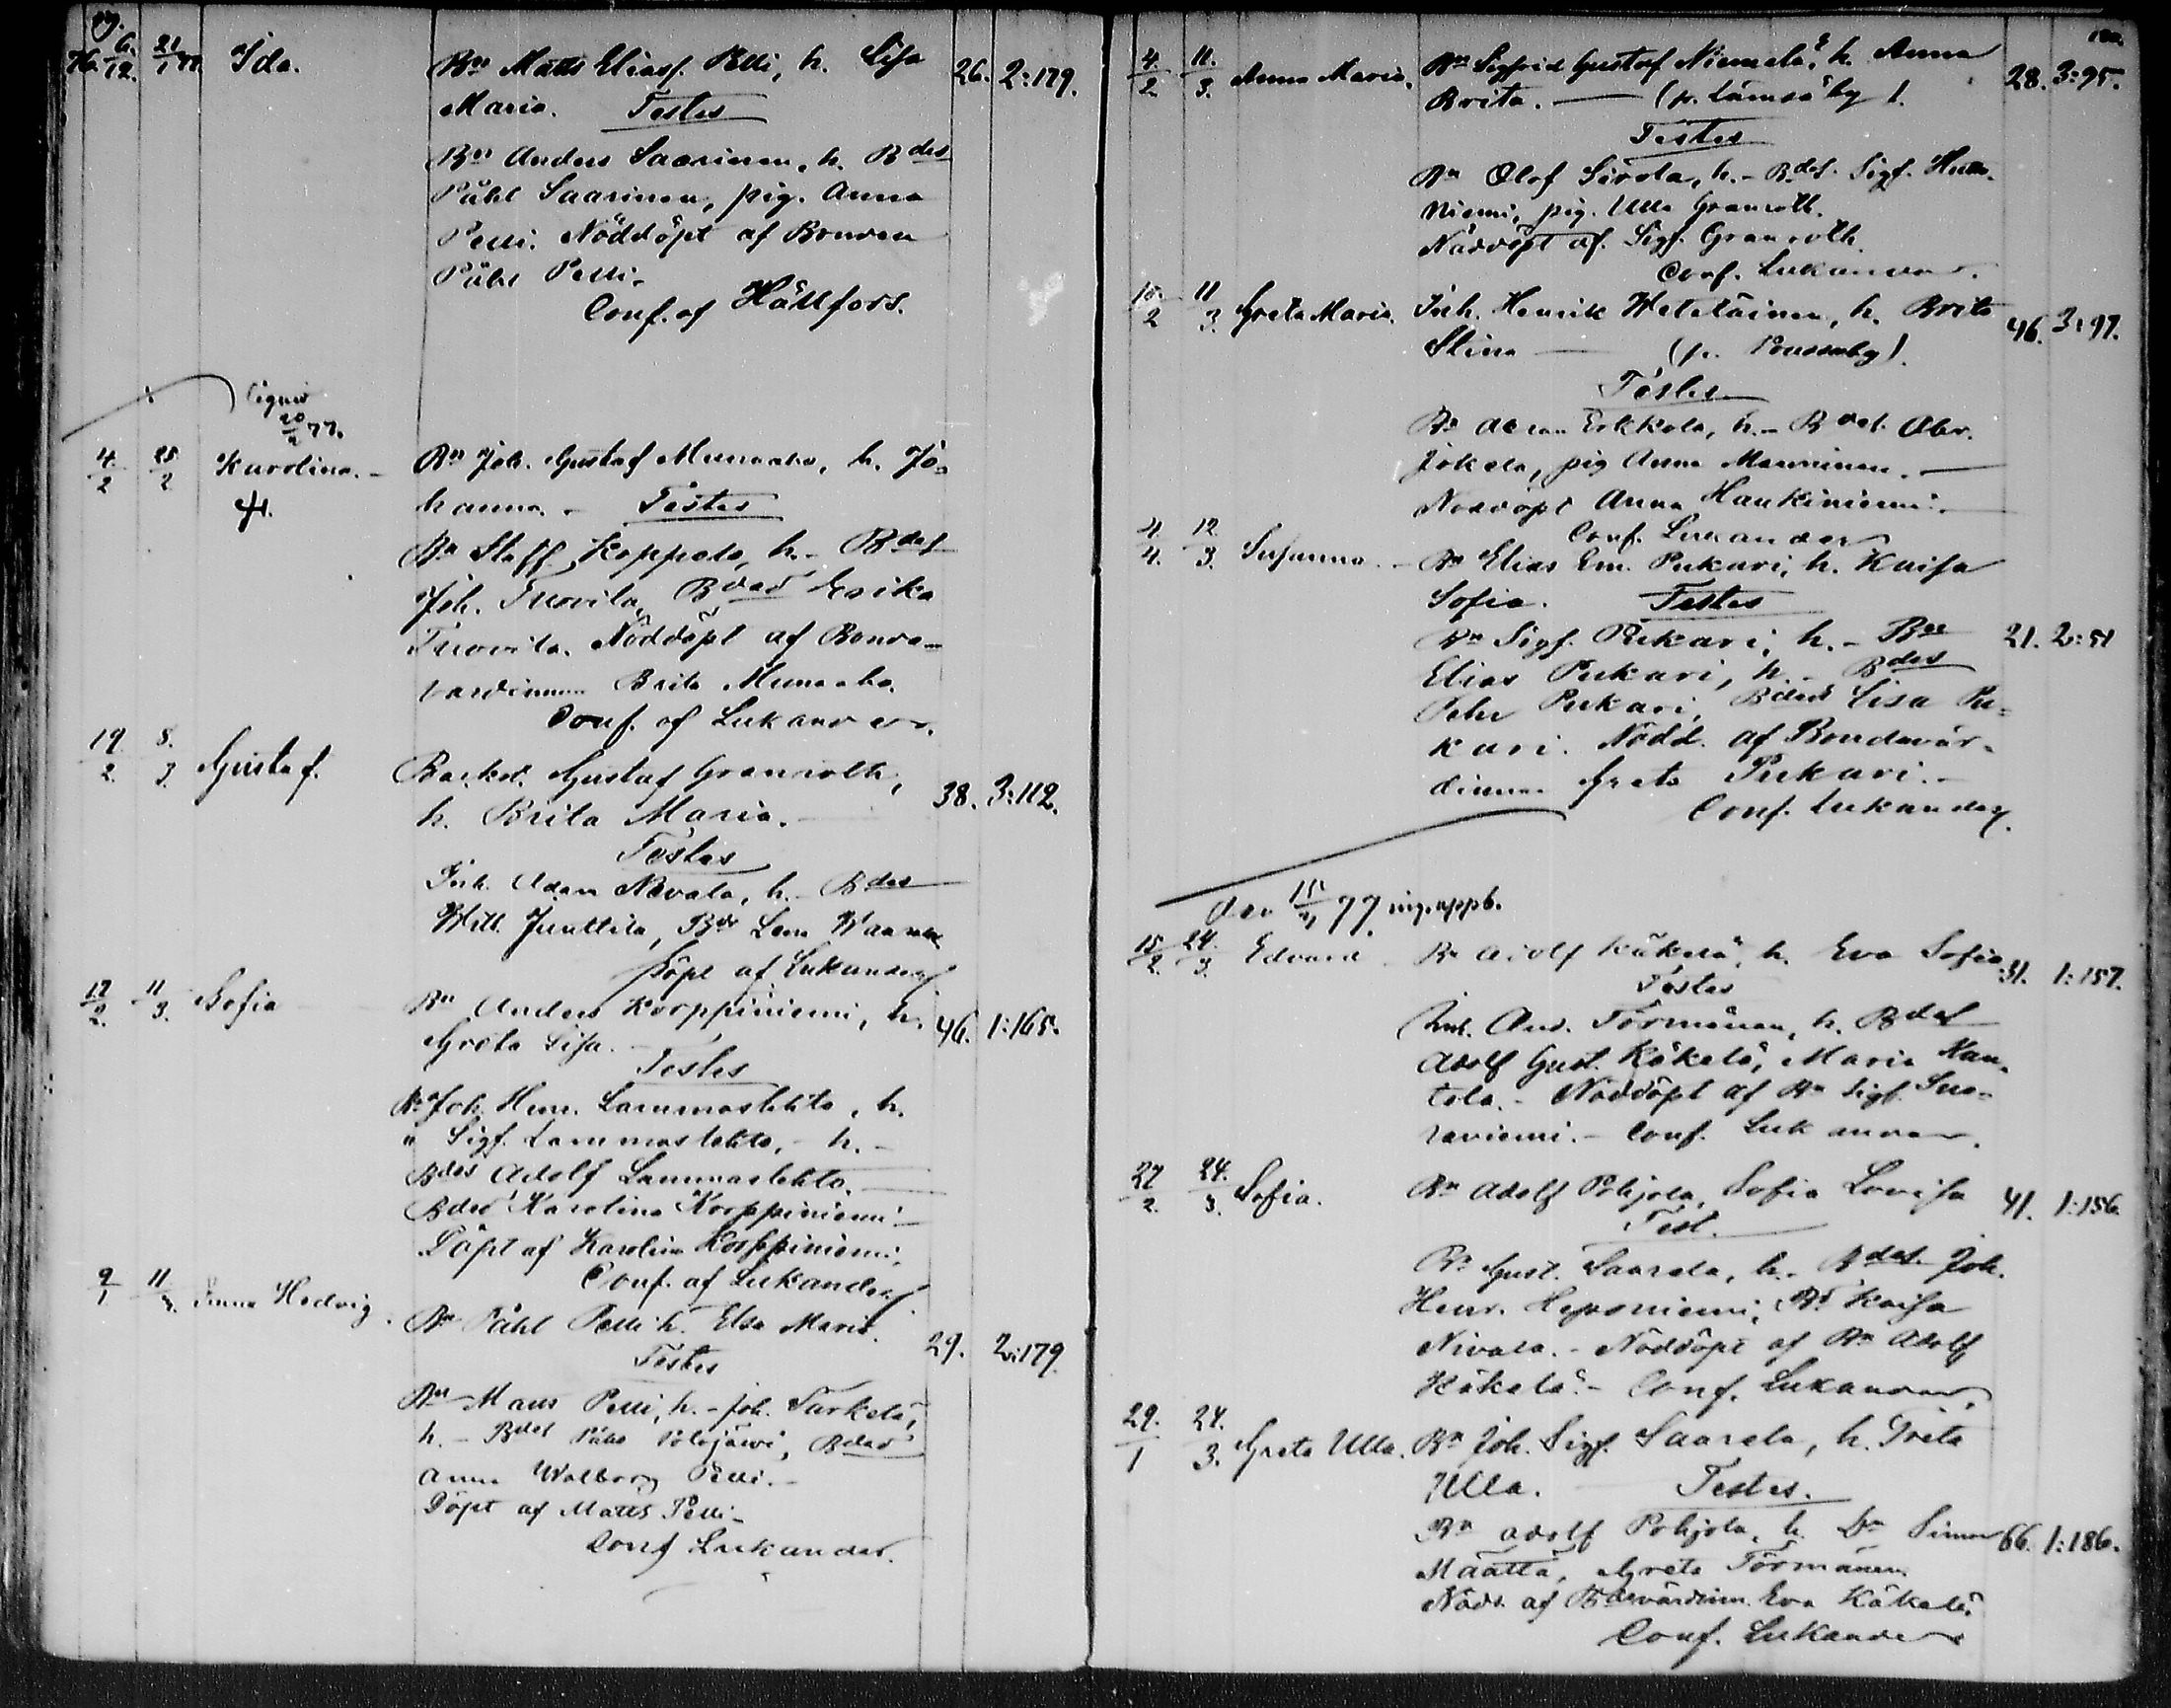 76. 6/12. 21/1 77. Ida. Bn Matts Eliass. Pelli, h. Lisa 26. 2:179.
Maria. Testes
Bn Anders Saarinen, h. Bdes
Påhl Saarinen, pig. Anna
Pelli. Nöddöpt af Bonden
Påhl Pelli.
Conf. af Hällfors.
20/2 77.
4/2 25/2 Karolina. Bn Joh. Gustaf Munaaho, h. Jo=
hanna. Testes
Bn Staff. Koppelo, h. - Bdes
Joh. Tuovila, Bded Erika
Tuovila. Nöddöpt af Bonde-
värdinnan Brita Munaaho.
Conf. af Lukander.
19/2 8/3 Gustaf. Backst. Gustaf Granroth, 38. 3:112.
h. Brita Maria.
Testes
Inh. Adam Nivala, h. - Bdes
Will. Junttila, Lena
Döpt af Lukander
17/2 11/3 Sofia Bn Anders Korppiniemi, h. 46. 1:165.
Greta Lisa.
Testes
Bn Joh. Henr. Lammaslehto, h.
" Sigf. Lammaslehto, - h. -
Bdes Adolf Lammaslehto.
Bded Karolina Korppiniemi
Döpt af Karolina Korppiniemi.
Conf. af Lukander
9/1 11/3 Anna Hedvig. Bn Påhl Pelli h. Elsa Maria. 29. 2:179.
Testes
Bn Matts Pelli, h. - Joh. Särkelä,
h. - Bdes Påhl Bded
Anna Walborg Pelli. -
Döpt af Matts Pelli -
Conf Lukander.
4/2 11/3. Anna Maria. Bn Sigfrid Gustaf Niemelä, h. Anna 28. 3:95.
Brita. (fr. Lämsä by).
Testes
Bn Olof Sirola, h. - Bdes. Sigf.
niemi, pig. Ulla Granroth.
Nöddöpt af. Sigf. Granroth.
Conf. Lukander.
10/2 11/3. Greta Maria. Inh. Henrik Weteläinen, h. Brita 46. 3:97.
Stina (fr. Poussuby).
Testes
Bn Erkkola, h. - Bdes. Abr.
Jokela, pig Anna Manninen.
Nöddöpt Anna Haukiniemi.
Conf. Lukander
4/4. 12/3 Susanna. Bn Elias Em. Pukari, h. Kaisa
Sofia. Testes
Bn Sigf. Pukari, h. - Bn 21. 2:51
Elias Pukari, h. - Bdes
Petter Pukari, Bded Lisa Pu=
kari. Nödd. af Bondevär-
dinnan Greta Pukari. -
Conf. Lukander.
den 77 ing. uppb.
15/2. 24/3. Edvard Bn Adolf Käkelä, h. Eva Sofia 31. 1:157.
Testes
Inh. And. Törmänen, h. Bdes
Adolf Gust. Käkelä, Maria Nau-
tela. - Nöddöpt af Bn Sigf. Suo-
raniemi. - Conf. Lukander.
27/2. 24/3. Sofia. Bn Adolf Pohjola, Sofia Lovisa 41. 1:156.
Test.
Bn Gust. Saarela, h. Bdes. Joh.
Henr. Heponiemi, Kaisa
Nivala. - Nöddöpt af Bn Adolf
Käkelä. - Conf. Lukander,
29/1 24/3. Greta Ulla. Bn Joh. Sigf. Saarela, h. Greta
Ulla. Testes.
Bn Adolf Pohjola, h. Dn Simon 66. 1:186.
Määttä, Greta Törmänen
Nödd. af Bdevärdinn. Eva Käkelä.
Conf. Lukander